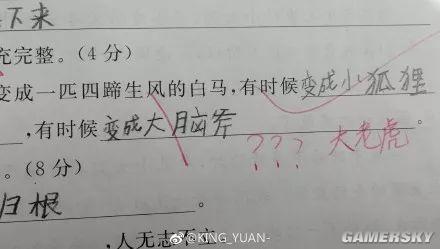 下来
充完整。(4分)
变成一匹四蹄生风的白马,有时候变成小狐狸
,有时候变成大脑斧
??? 大老虎
。(8分)
归根 。
@KING_YUAN-
,人无志不立
GAMERSKY